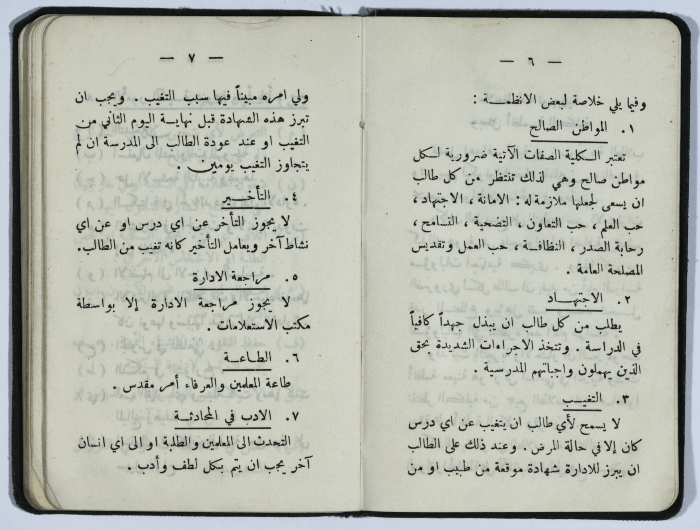 — ٦ —
وفيما يلي خلاصة لبعض الانظمة :
١. المواطن الصالح
تعتبر الكلية الصفات الآتية ضرورية لسكل
مواطن صالح وهي لذلك تنتظر من كل طالب
ان يسعى لجعلها ملازمة له : الامانة ، الاجتهاد ،
حب العلم ، حب التعاون ، التضحية ، التسامح ،
رحابة الصدر ، النظافة ، حب العمل وتقديس
المصلحة العامة .
٢. الاجتهاد
يطلب من كل طالب ان يبذل جهداً كافياً
في الدراسة . وتتخذ الاجراءات الشديدة بحق
الذين يهملون واجباتهم المدرسية .
٣. التغيب
لا يسمح لأي طالب ان يتغيب عن اي درس
كان إلا في حالة المرض . وعند ذلك على الطالب
ان يبرز للادارة شهادة موقعة من طبيب او من
— ٧ —
ولي امره مبيناً فيها سبب التغيب . ويجب ان
تبرز هذه الشهادة قبل نهاية اليوم الثاني من
التغيب او عند عودة الطالب الى المدرسة ان لم
يتجاوز التغيب يومين .
٤. التأخير
لا يجوز التأخر عن اي درس او عن اي
نشاط آخر ويعامل التأخير كانه تغيب من الطالب.
٥. مراجعة الادارة
لا يجوز مراجعة الادارة إلا بواسطة
مكتب الاستعلامات .
٦. الطاعة
طاعة المعلمين والعرفاء أمر مقدس .
٧. الادب في المحادثة
التحدث الى المعلمين والطلبة او الى اي انسان
آخر يجب ان يتم بكل لطف وأدب .